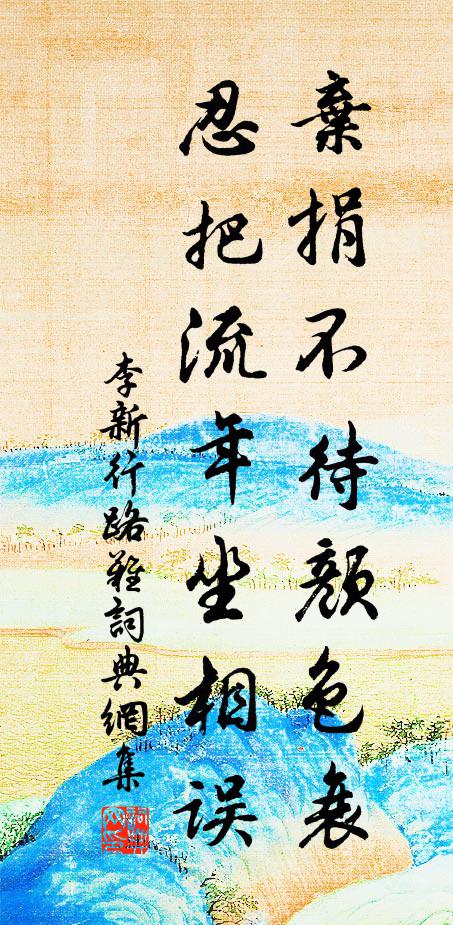 棄捐不待顔色衰
忍把流年坐相误
李新行路難詞典網集